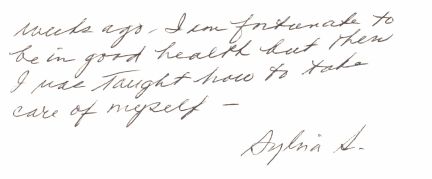 weeks ago - I am fortunate to
be in good health but then
I was taught how to take
care of myself -
Sylvia S.